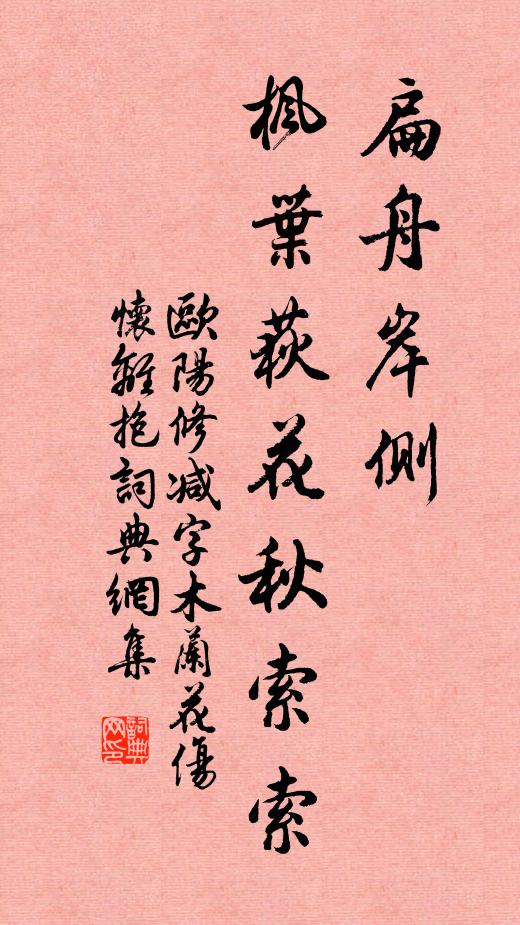 扁舟岸側
楓葉荻花秋索索
歐陽修減字木蘭花傷
懷離抱詞典網集
詞典網印